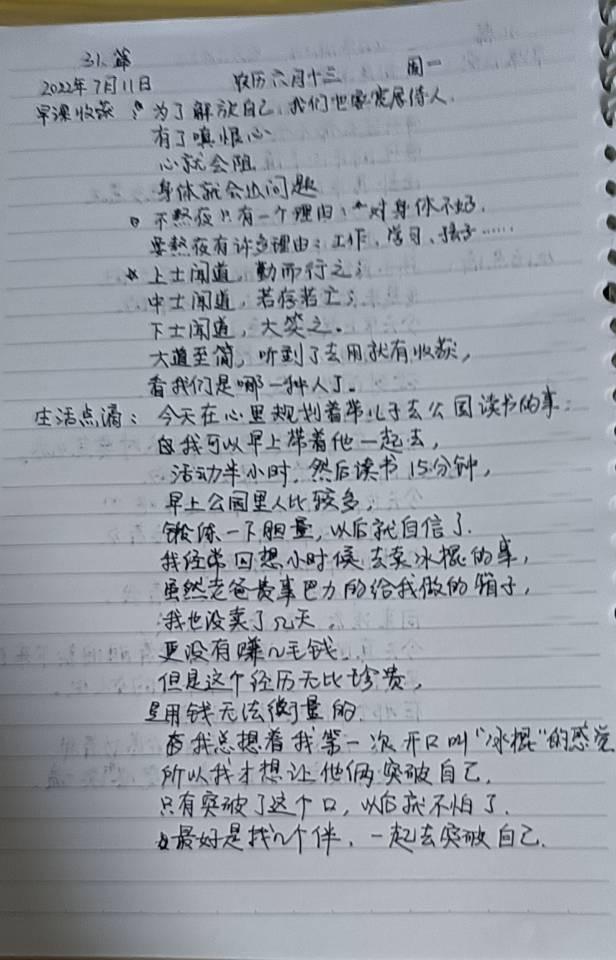 31篇
2022年7月11日 农历六月十三 周一
早课收获: 为了解放自己,我们也要宽厚待人.
有了嗔恨心
心就会阻
身体就会出问题
不熬夜只有一个理由:对身体不好.
要熬夜有许多理由:工作、学习、孩子……
上士闻道,勤而行之;
中士闻道,若存若亡;
下士闻道,大笑之。
大道至简,听到了去用就有收获,
看我们是哪一种人了。
生活点滴: 今天在心里规划着带儿子去公园读书的事:
我可以早上带着他一起去,
活动半小时,然后读书15分钟,
早上公园里人比较多,
锻练一下胆量,以后就自信了.
我经常回想小时候去卖冰棍的事,
虽然老爸费事巴力的给我做的箱子,
我也没卖了几天,
更没有赚几毛钱.
但是这个经历无比珍贵,
是用钱无法衡量的.
我总想着我第一次开口叫"冰棍"的感觉
所以我才想让他俩突破自己.
只有突破了这个口,以后就不怕了.
最好是找几个伴,一起去突破自己.